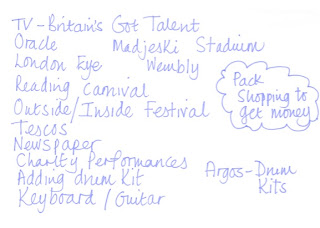 TV-Britain's Got Talent
Oracle Madjeski Stadium
London Eye Wembly
Reading Carnival
Outside/Inside Festival
Tescos
Newspaper
Charity Performances
Adding drum Kit
Keyboard/Guitar
Pack
Shopping to
get money
Argos-Drum
Kits